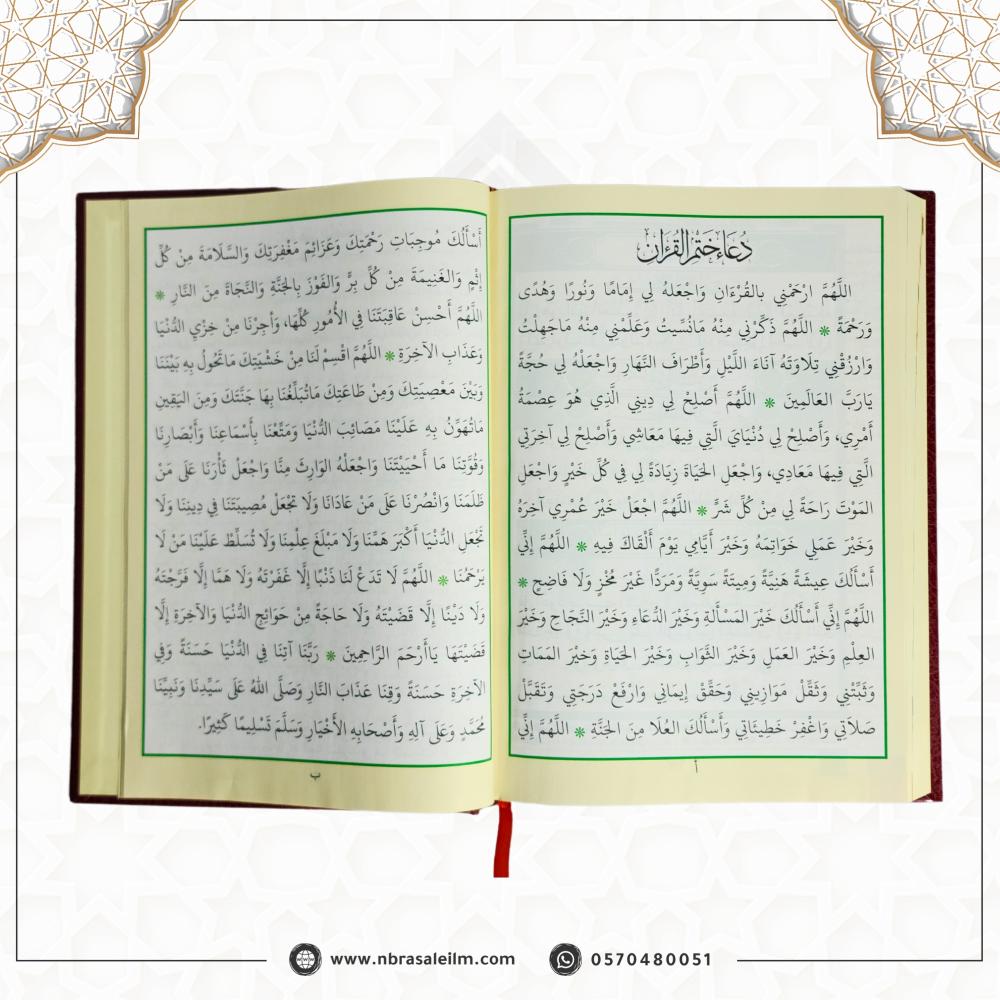 دُعَاءُ خَتْمِ القُرْءَانِ
اللَّهُمَّ ارْحَمْنِي بالقُرْءَانِ وَاجْعَلهُ لِي إِمَامًا وَنُورًا وَهُدًى
وَرَحْمَةً * اللَّهُمَّ ذَكِّرْنِي مِنْهُ مَانُسِّيتُ وَعَلِّمْنِي مِنْهُ مَاجَهِلْتُ
وَارْزُقْنِي تِلَاوَتَهُ آنَاءَ اللَّيْلِ وَأَطْرَافَ النَّهَارِ وَاجْعَلْهُ لِي حُجَّةً
يَارَبَّ العَالَمِينَ * اللَّهُمَّ أَصْلِحْ لِي دِينِي الَّذِي هُوَ عِصْمَةُ
أَمْرِي، وَأَصْلِحْ لِي دُنْيَايَ الَّتِي فِيهَا مَعَاشِي وَأَصْلِحْ لِي آخِرَتِي
الَّتِي فِيهَا مَعَادِي، وَاجْعَلِ الحَيَاةَ زِيَادَةً لِي فِي كُلِّ خَيْرٍ وَاجْعَلِ
المَوْتَ رَاحَةً لِي مِنْ كُلِّ شَرٍّ * اللَّهُمَّ اجْعَلْ خَيْرَ عُمْرِي آخِرَهُ
وَخَيْرَ عَمَلِي خَوَاتِمَهُ وَخَيْرَ أَيَّامِي يَوْمَ أَلْقَاكَ فِيهِ * اللَّهُمَّ إِنِّي
أَسْأَلُكَ عِيشَةً هَنِيَّةً وَمِيتَةً سَوِيَّةً وَمَرَدًّا غَيْرَ مُخْزٍ وَلَا فَاضِحٍ *
اللَّهُمَّ إِنِّي أَسْأَلُكَ خَيْرَ المَسْأَلةِ وَخَيْرَ الدُّعَاءِ وَخَيْرَ النَّجَاحِ وَخَيْرَ
العِلْمِ وَخَيْرَ العَمَلِ وَخَيْرَ الثَّوَابِ وَخَيْرَ الحَيَاةِ وَخيْرَ المَمَاتِ
وَثَبِّتْنِي وَثَقِّلْ مَوَازِينِي وَحَقِّقْ إِيمَانِي وَارْفَعْ دَرَجَتِي وَتَقَبَّلْ
صَلَاتِي وَاغْفِرْ خَطِيئَاتِي وَأَسْأَلُكَ العُلَا مِنَ الجَنَّةِ * اللَّهُمَّ إِنِّي
أ
أَسْأَلُكَ مُوجِبَاتِ رَحْمَتِكَ وَعَزَائِمَ مَغْفِرَتِكَ وَالسَّلَامَةَ مِنْ كُلِّ
إِثْمٍ وَالغَنِيمَةَ مِنْ كُلِّ بِرٍّ وَالفَوْزَ بِالجَنَّةِ وَالنَّجَاةَ مِنَ النَّارِ *
اللَّهُمَّ أَحْسِنْ عَاقِبَتَنَا فِي الأُمُورِ كُلِّهَا، وَأَجِرْنَا مِنْ خِزْيِ الدُّنْيَا
وَعَذَابِ الآخِرَةِ * اللَّهُمَّ اقْسِمْ لَنَا مِنْ خَشْيَتِكَ مَاتَحُولُ بِهِ بَيْنَنَا
وَبَيْنَ مَعْصِيَتِكَ وَمِنْ طَاعَتِكَ مَاتُبَلِّغُنَا بِهَا جَنَّتَكَ وَمِنَ اليَقِينِ
مَاتُهَوِّنُ بِهِ عَلَيْنَا مَصَائِبَ الدُّنْيَا وَمَتِّعْنَا بِأَسْمَاعِنَا وَأَبْصَارِنَا
وَقُوَّتِنَا مَا أَحْيَيْتَنَا وَاجْعَلْهُ الوَارِثَ مِنَّا وَاجْعَلْ ثَأْرَنَا عَلَى مَنْ
ظَلَمَنَا وَانْصُرْنَا عَلَى مَنْ عَادَانَا وَلَا تَجْعَلْ مُصِيبَتَنَا فِي دِينِنَا وَلَا
تَجْعَلِ الدُّنْيَا أَكْبَرَ هَمِّنَا وَلَا مَبْلَغَ عِلْمِنَا وَلَا تُسَلِّطْ عَلَيْنَا مَنْ لَا
يَرْحَمُنَا * اللَّهُمَّ لَا تَدَعْ لَنَا ذَنْبًا إِلَّا غَفَرْتَهُ وَلَا هَمًّا إِلَّا فَرَّجْتَهُ
وَلَا دَيْنًا إِلَّا قَضَيْتَهُ وَلَا حَاجَةً مِنْ حَوَائِجِ الدُّنْيَا وَالآخِرَةِ إِلَّا
قَضَيْتَهَا يَاأَرْحَمَ الرَّاحِمِينَ * رَبَّنَا آتِنَا فِي الدُّنْيَا حَسَنَةً وَفِي
الآخِرَةِ حَسَنَةً وَقِنَا عَذَابَ النَّارِ وَصَلَّى اللهُ عَلَى سَيِّدِنَا وَنَبِيِّنَا
مُحَمَّدٍ وَعَلَى آلِهِ وَأَصْحَابِهِ الأَخْيَارِ وَسَلَّمَ تَسْلِيمًا كَثِيرًا.
ب
www.nbrasaleilm.com
0570480051